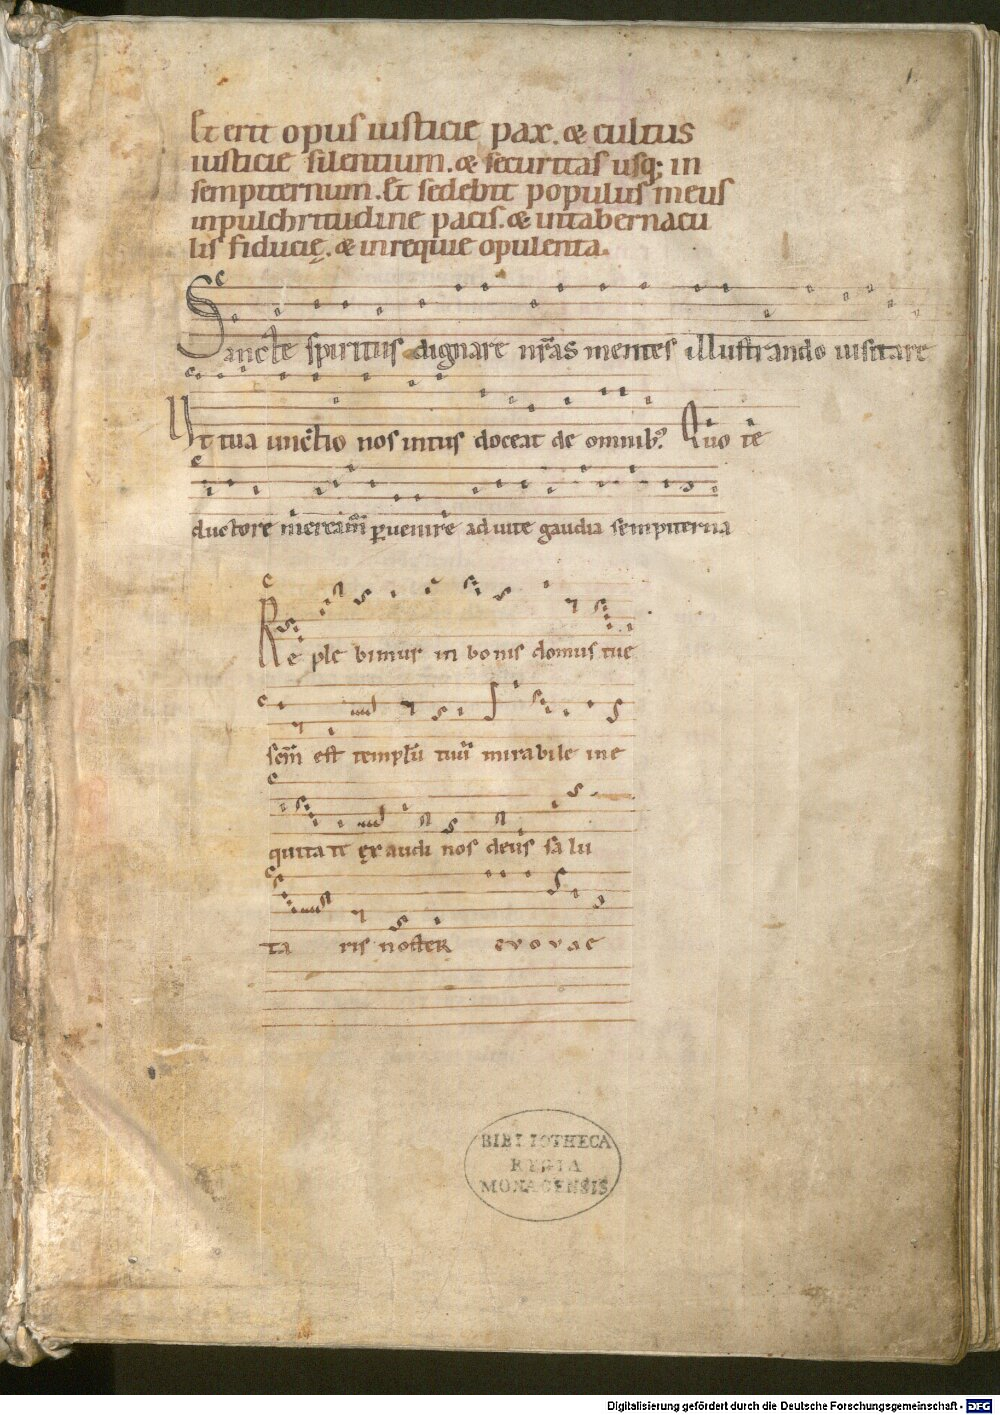 1.
Et erit opus iusticie pax. & cultus
iusticie silentium. & securitas usq; in
sempiternum. Et sedebit populus meus
inpulchritudine pacis. & intabernacu
lis fiducię. & inrequie opulenta.
Sancte spiritus dignare nr̄as mentes illustrando uisitare
Ut tua unctio nos intus doceat de omnib; Quo te
ductore meream̄ ꝑuenire ad uite gaudia sempiterna
Re ple bimur in bonis domus tue
sem̄ est templū tuū mirabile ine
quita te exaudi nos deus sa lu
ta ris noster evovae
BIBLIOTHECA
REGIA
MONACENSIS
Digitalisierung gefördert durch die Deutsche Forschungsgemeinschaft - DFG